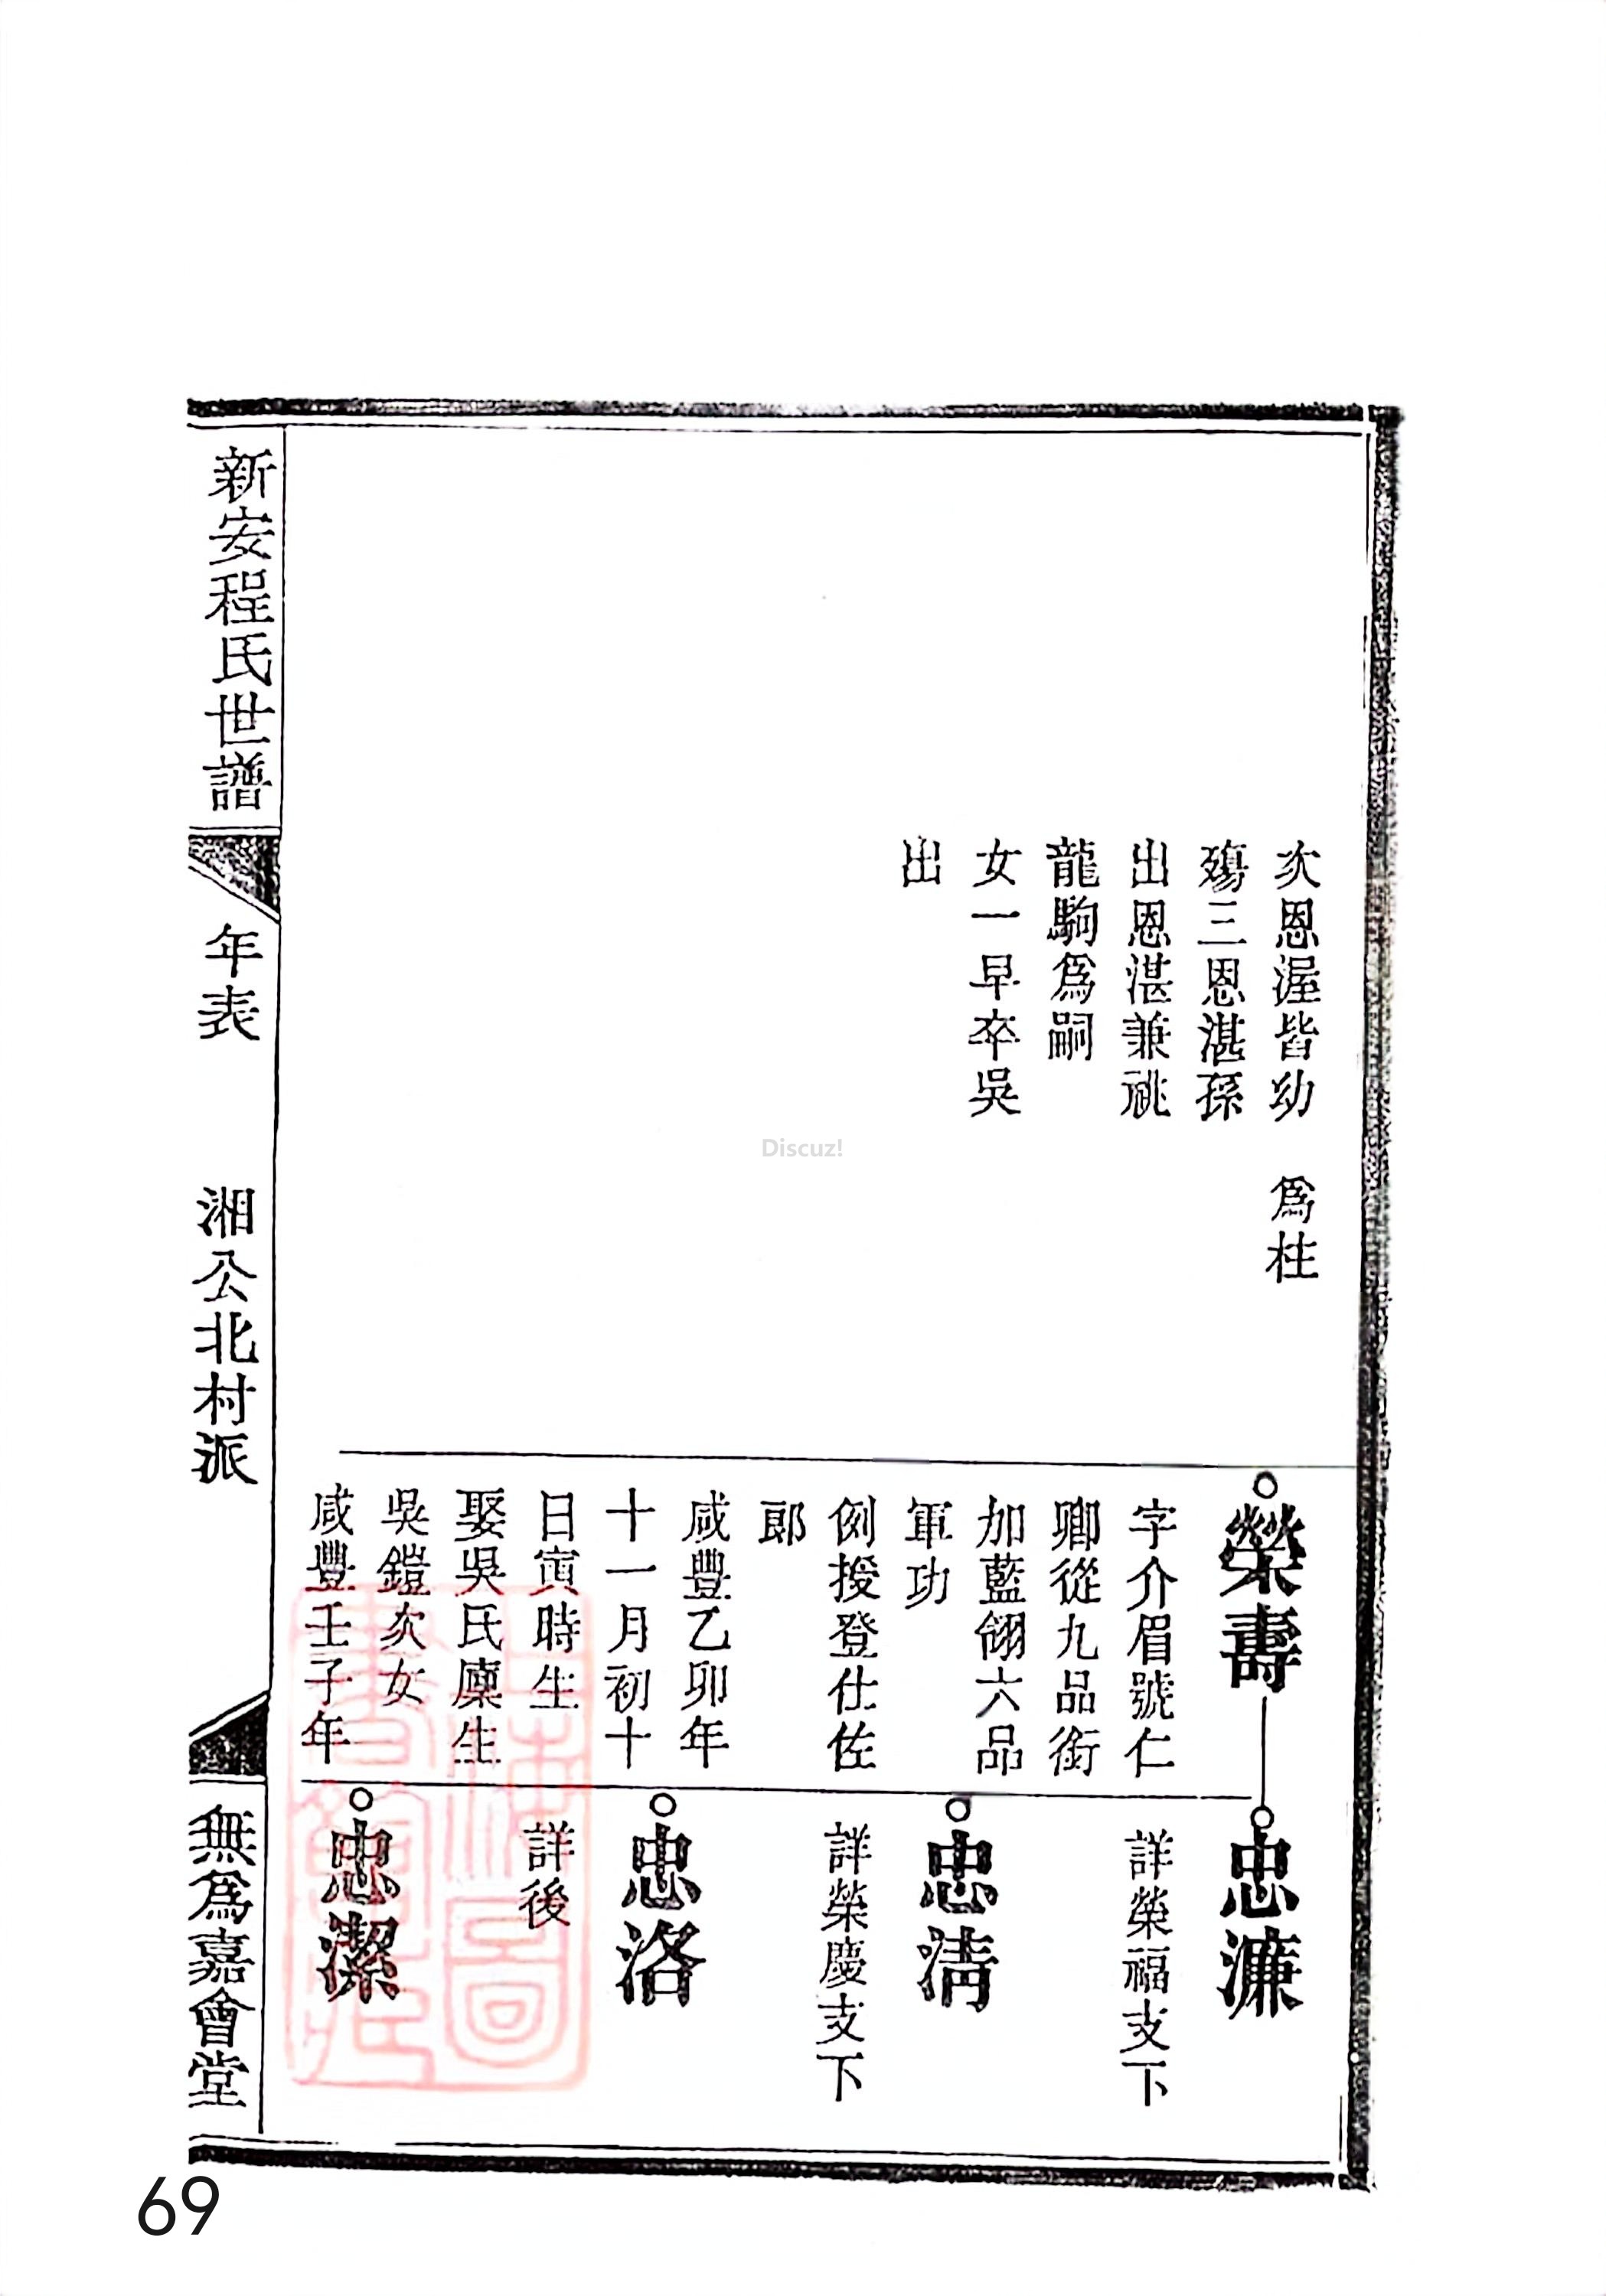 次恩渥皆幼
殤三恩湛孫
出恩湛兼祧
龍駒爲嗣
女一早卒吳
出
爲柱
榮壽
字介眉號仁
卿從九品銜
加藍翎六品
軍功
例授登仕佐
郎
咸豐乙卯年
十一月初十
日寅時生
娶吳氏廩生
吳鎧次女
咸豐壬子年
忠濂
詳榮福支下
忠清
詳榮慶支下
忠洛
詳後
忠潔
新安程氏世譜
年表
湘公北村派
無爲嘉會堂
上海圖
書館藏
Discuz!
69